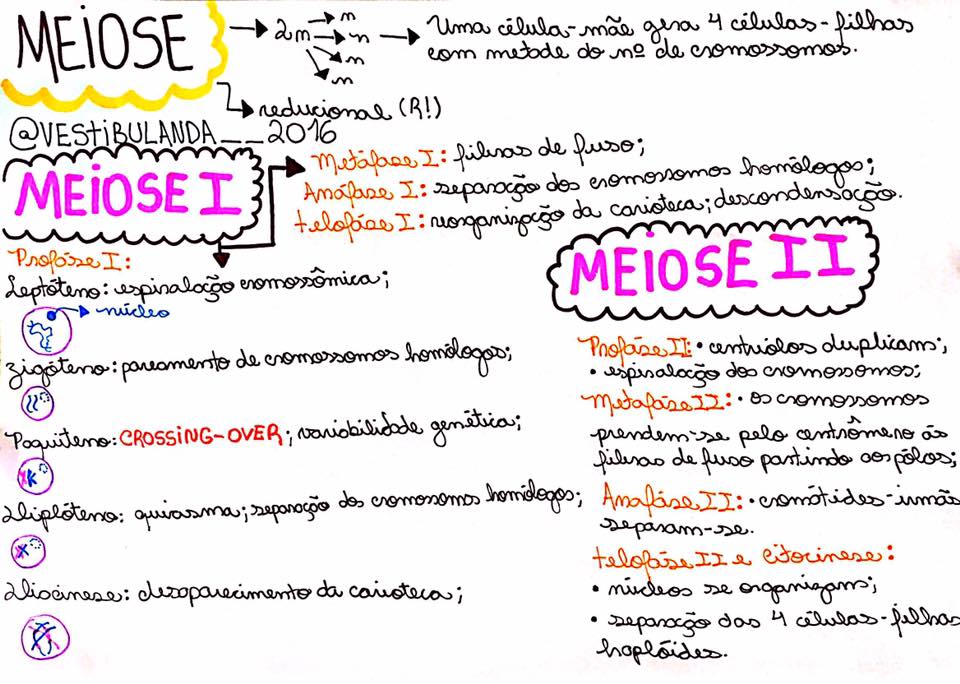 MEIOSE
2n
n
n
n
n
Uma célula-mãe gera 4 células-filhas
com metade do nº de cromossomos.
reducional (R!)
@VESTiBULANDA___2016
MEiOSE I
Metáfase I: fibras de fuso;
Anáfase I: separação dos cromossomos homólogos;
telofáse I: reorganização da carioteca; descondensação.
Profáse I:
Leptóteno: espiralação cromossômica;
núcleo
zigóteno: pareamento de cromossomos homólogos;
Paquíteno: CROSSiNG-OVER; variabilidade genética;
Diplóteno: quiasma; separação dos cromossomos homólogos;
Diacinese: desaparecimento da carioteca;
MEiOSE II
Profáse II: • centríolos duplicam;
• espiralação dos cromossomos;
Metafáse II: • os cromossomos
prendem-se pelo centrômero às
fibras de fuso partindo aos pólos;
Anafáse II: • cromátides-irmãs
separam-se.
telofáse II e Citocinese:
• núcleos se organizam;
• separação das 4 células-filhas
haplóides.